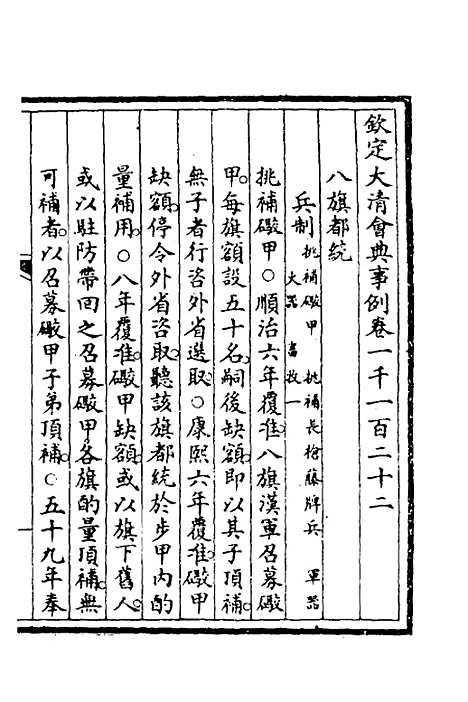 欽定大清會典事例卷一千一百二十二
八旗都統
兵制 挑補礮甲 挑補長槍藤牌兵 軍器
火器 畜牧一
挑補礮甲○順治六年覆准八旗漢軍召募礮
甲。每旗額設五十名。嗣後缺額。即以其子頂補。
無子者行咨外省選取。○康熙六年覆准。礮甲
缺額。停令外省咨取。聽該旗都統於步甲內酌
量補用。○八年覆准。礮甲缺額。或以旗下舊人。
或以駐防帶回之召募礮甲各旗酌量頂補。無
可補者。以召募礮甲子弟頂補。○五十九年奉